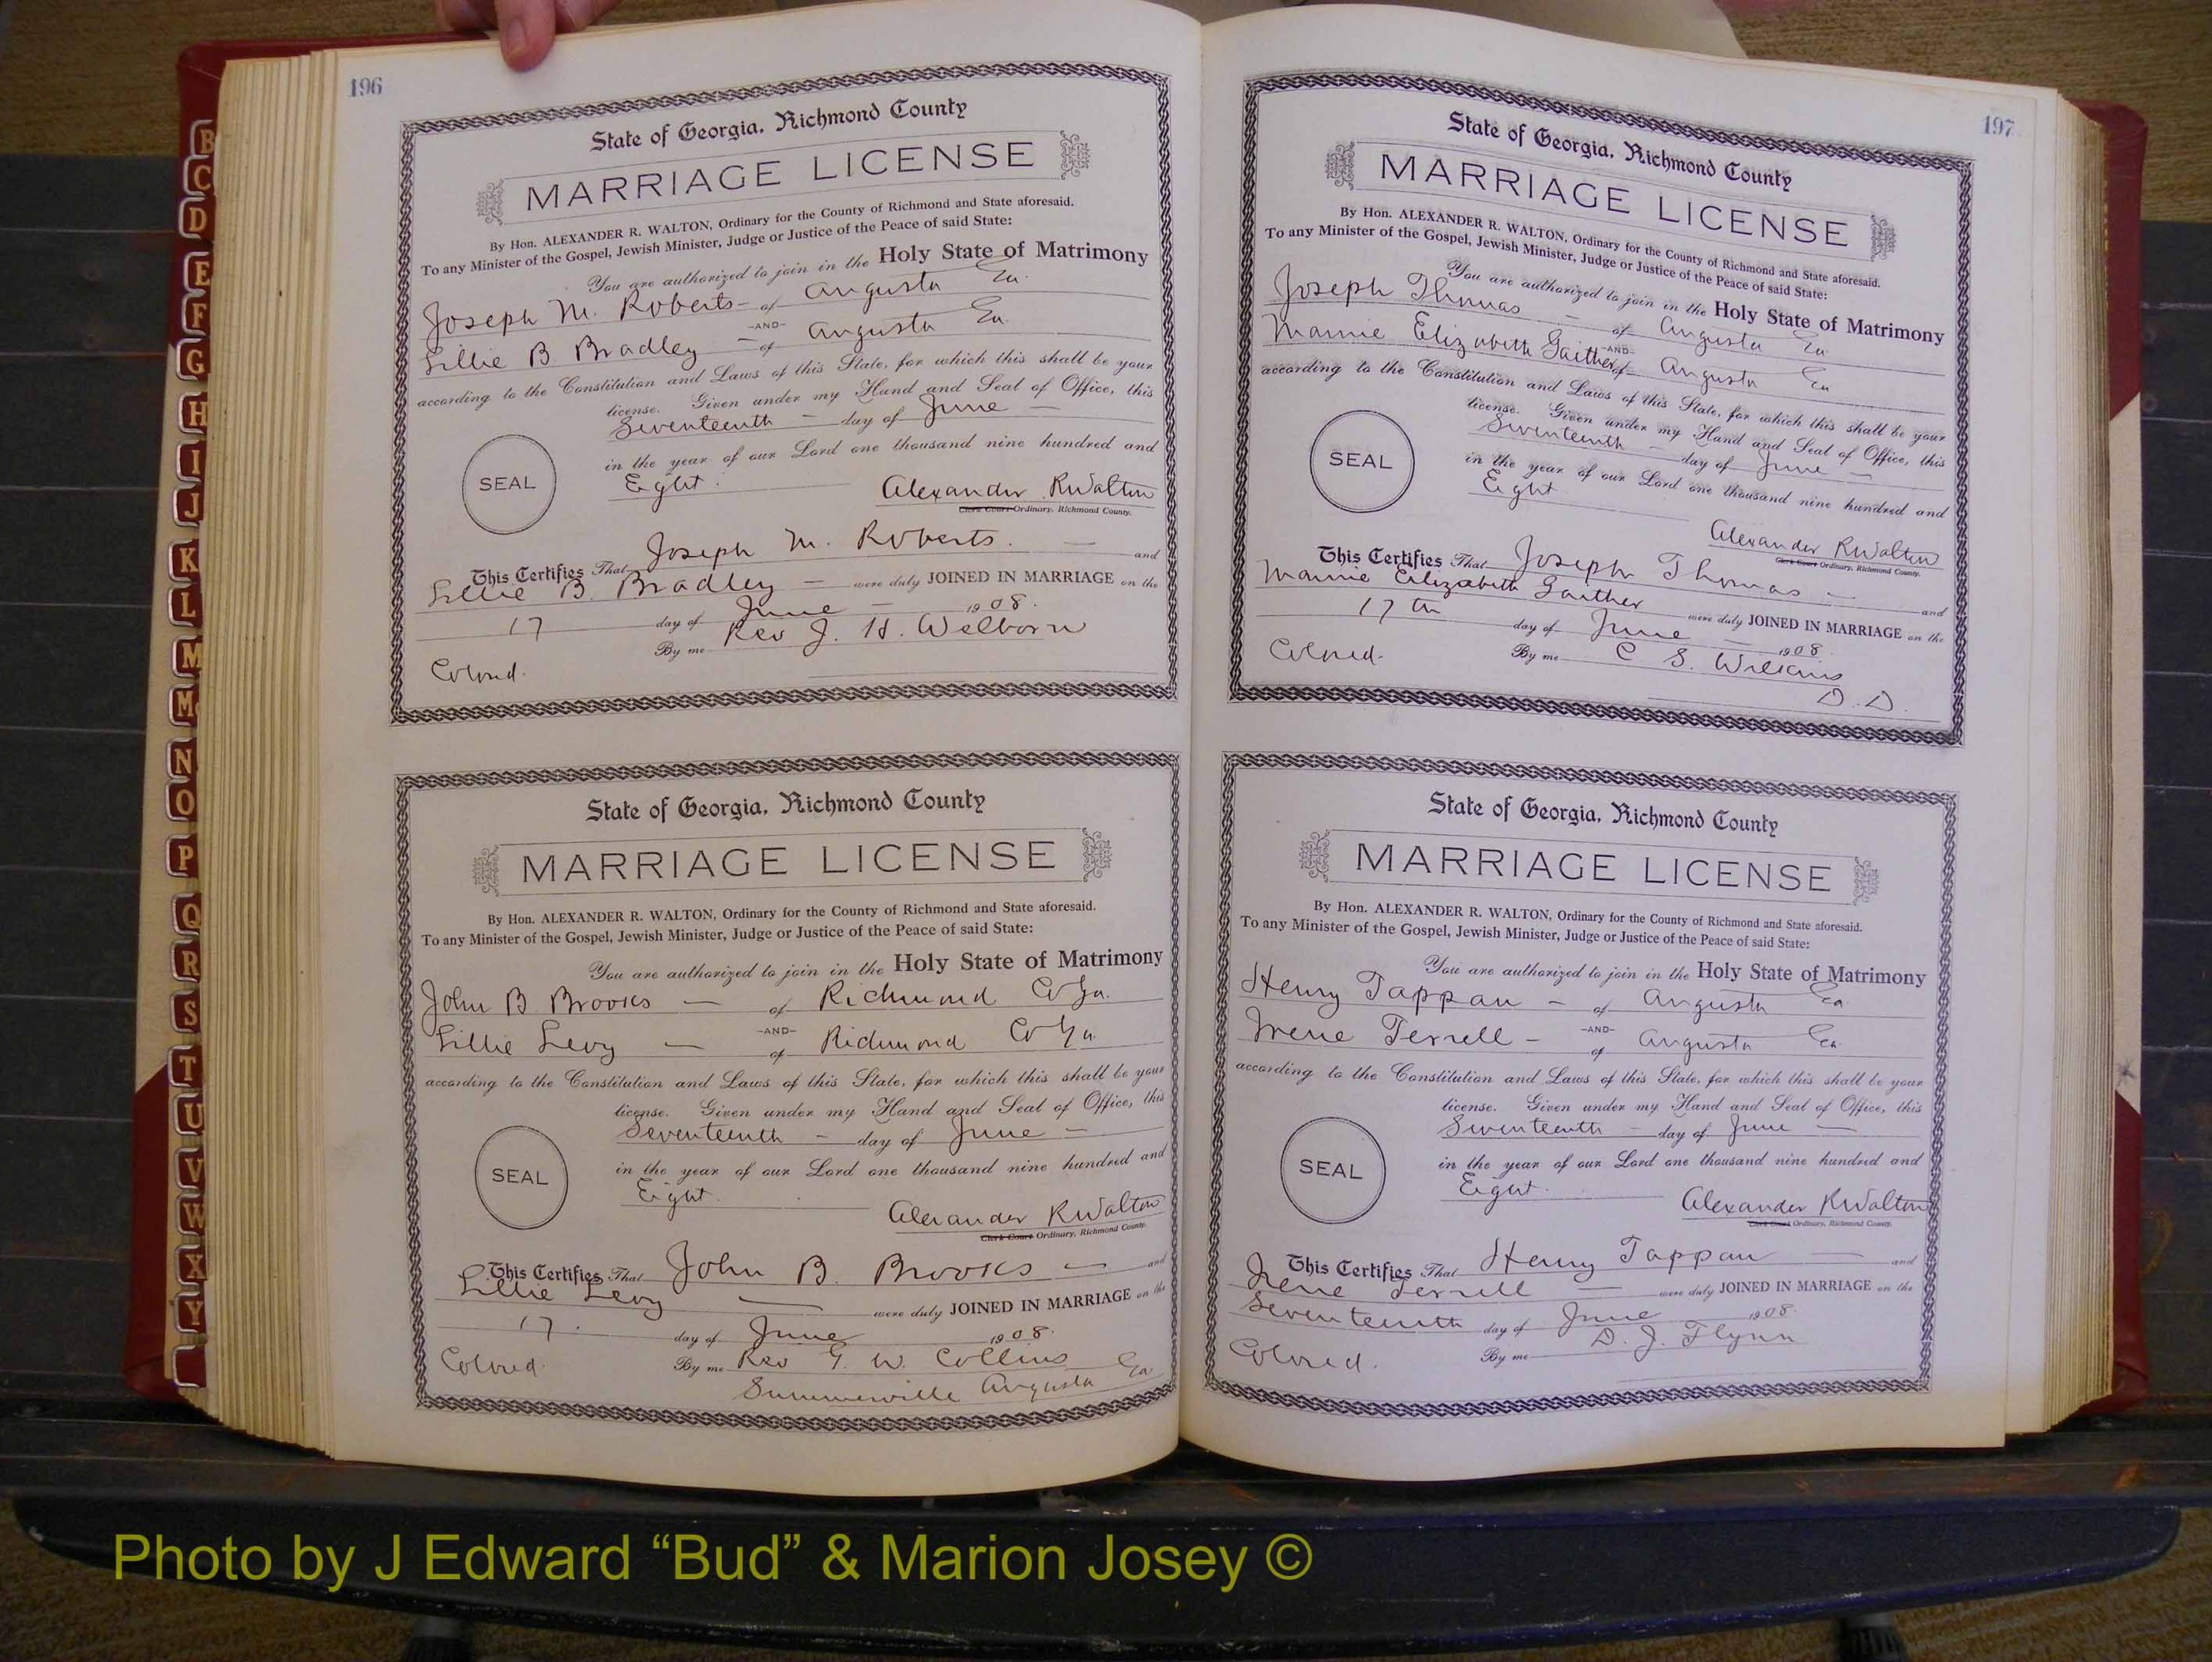 196
State of Georgia, Richmond County
MARRIAGE LICENSE
By Hon. ALEXANDER R. WALTON, Ordinary for the County of Richmond and State aforesaid.
To any Minister of the Gospel, Jewish Minister, Judge or Justice of the Peace of said State:
You are authorized to join in the Holy State of Matrimony
Joseph M. Roberts - of Augusta Ga.
-AND-
Lillie B Bradley - of Augusta Ga.
according to the Constitution and Laws of this State, for which this shall be your
license. Given under my Hand and Seal of Office, this
Seventeenth - day of June -
in the year of our Lord one thousand nine hundred and
SEAL
Eight.
Alexander R Walton
Clerk Court Ordinary, Richmond County.
This Certifies That Joseph M. Roberts. - and
Lillie B. Bradley - were duly JOINED IN MARRIAGE on the
17 day of June - 1908.
By me Rev J. H. Welborn
Colored.
State of Georgia, Richmond County
MARRIAGE LICENSE
By Hon. ALEXANDER R. WALTON, Ordinary for the County of Richmond and State aforesaid.
To any Minister of the Gospel, Jewish Minister, Judge or Justice of the Peace of said State:
You are authorized to join in the Holy State of Matrimony
John B Brooks - of Richmond Co Ga.
-AND-
Lillie Levy - of Richmond Co Ga.
according to the Constitution and Laws of this State, for which this shall be your
license. Given under my Hand and Seal of Office, this
Seventeenth - day of June -
in the year of our Lord one thousand nine hundred and
SEAL
Eight.
Alexander R Walton
Clerk Court Ordinary, Richmond County.
This Certifies That John B. Brooks - and
Lillie Levy - were duly JOINED IN MARRIAGE on the
17. day of June 1908.
Colored. By me Rev G. W. Collins
Summerville Augusta Ga
197
State of Georgia, Richmond County
MARRIAGE LICENSE
By Hon. ALEXANDER R. WALTON, Ordinary for the County of Richmond and State aforesaid.
To any Minister of the Gospel, Jewish Minister, Judge or Justice of the Peace of said State:
You are authorized to join in the Holy State of Matrimony
Joseph Thomas - of Augusta Ga
-AND-
Mamie Elizabeth Gaither of Augusta Ga
according to the Constitution and Laws of this State, for which this shall be your
license. Given under my Hand and Seal of Office, this
Seventeenth - day of June -
in the year of our Lord one thousand nine hundred and
SEAL
Eight
Alexander R Walton
Clerk Court Ordinary, Richmond County.
This Certifies That Joseph Thomas - and
Mamie Elizabeth Gaither were duly JOINED IN MARRIAGE on the
17th day of June 1908.
Colored. By me C. S. Wilkins
D. D.
State of Georgia, Richmond County
MARRIAGE LICENSE
By Hon. ALEXANDER R. WALTON, Ordinary for the County of Richmond and State aforesaid.
To any Minister of the Gospel, Jewish Minister, Judge or Justice of the Peace of said State:
You are authorized to join in the Holy State of Matrimony
Henry Tappan - of Augusta Ga
-AND-
Irene Terrell - of Augusta Ga.
according to the Constitution and Laws of this State, for which this shall be your
license. Given under my Hand and Seal of Office, this
Seventeenth - day of June -
in the year of our Lord one thousand nine hundred and
SEAL
Eight.
Alexander R Walton
Clerk Court Ordinary, Richmond County.
This Certifies That Henry Tappan - and
Irene Terrell - were duly JOINED IN MARRIAGE on the
Seventeenth day of June 1908.
Colored. By me D. J. Flynn
B
C
D
E
F
G
H
I
J
K
L
M
Mc
N
O
P
Q
R
S
T
U
V
W
X
Y
Photo by J Edward “Bud” & Marion Josey ©